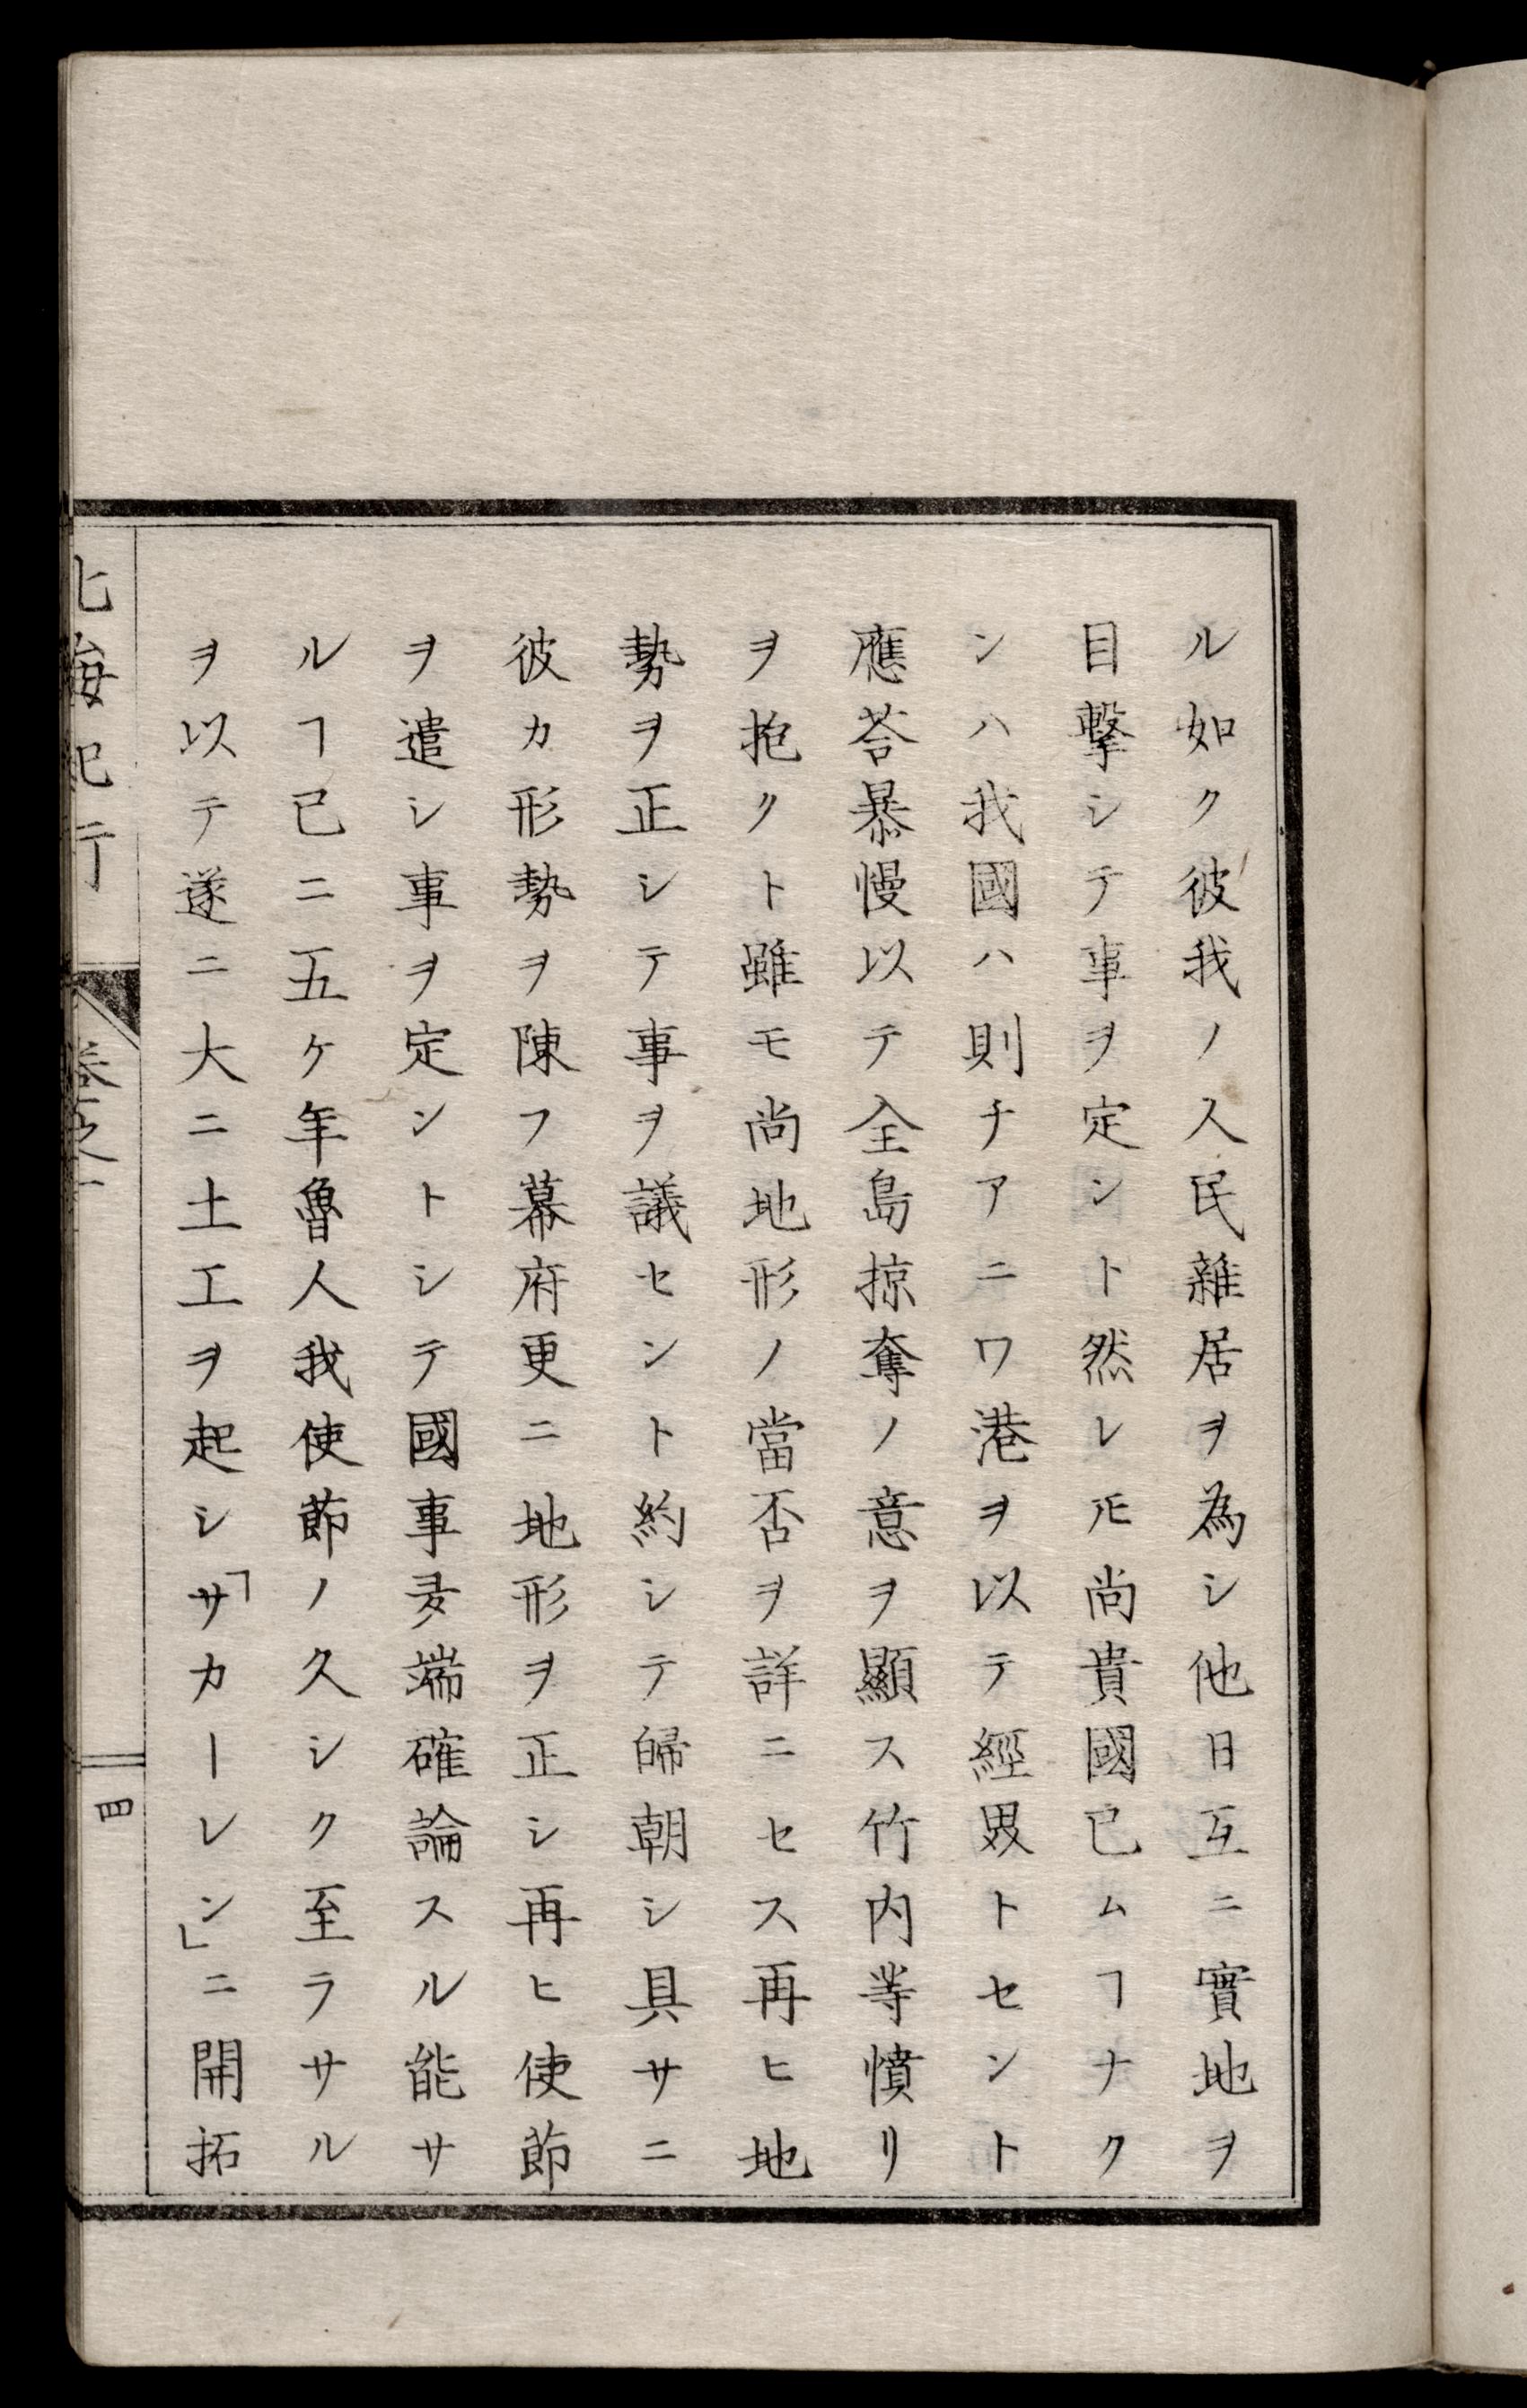 ル如ク彼我ノ人民雜居ヲ為シ他日互ニ實地ヲ
目撃シテ事ヲ定ント然レ𪜈尚貴國已ムヿナク
ンハ我國ハ則チアニワ港ヲ以テ經界トセント
應荅暴慢以テ全島掠奪ノ意ヲ顯ス竹内等憤リ
ヲ抱クト雖モ尚地形ノ當否ヲ詳ニセス再ヒ地
勢ヲ正シテ事ヲ議セント約シテ歸朝シ具サニ
彼カ形勢ヲ陳フ幕府更ニ地形ヲ正シ再ヒ使節
ヲ遣シ事ヲ定ントシテ國事多端確論スル能サ
ルヿ已ニ五ケ年魯人我使節ノ久シク至ラサル
ヲ以テ遂ニ大ニ土工ヲ起シ「サカーレン」ニ開拓
北海紀行
卷之一
四